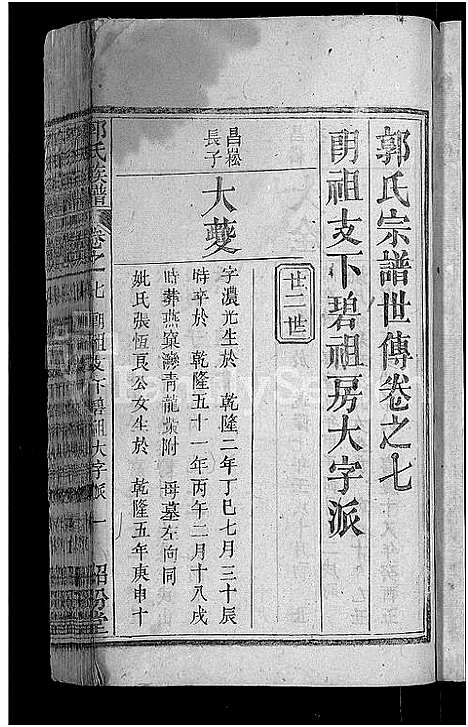 郭氏宗譜世傳卷之七
朗祖支下碧祖房大字派
廿二世
昌崧
長子
大夔
字濃光生於 乾隆二年丁巳七月三十辰
時卒於 乾隆五十一年丙午二月十八戌
時葬燕窠灣青龍 附 母墓左向同
妣氏張恆良公女生於 乾隆五年庚申十
郭氏族譜
卷之七
朗祖支下碧祖大字派
一